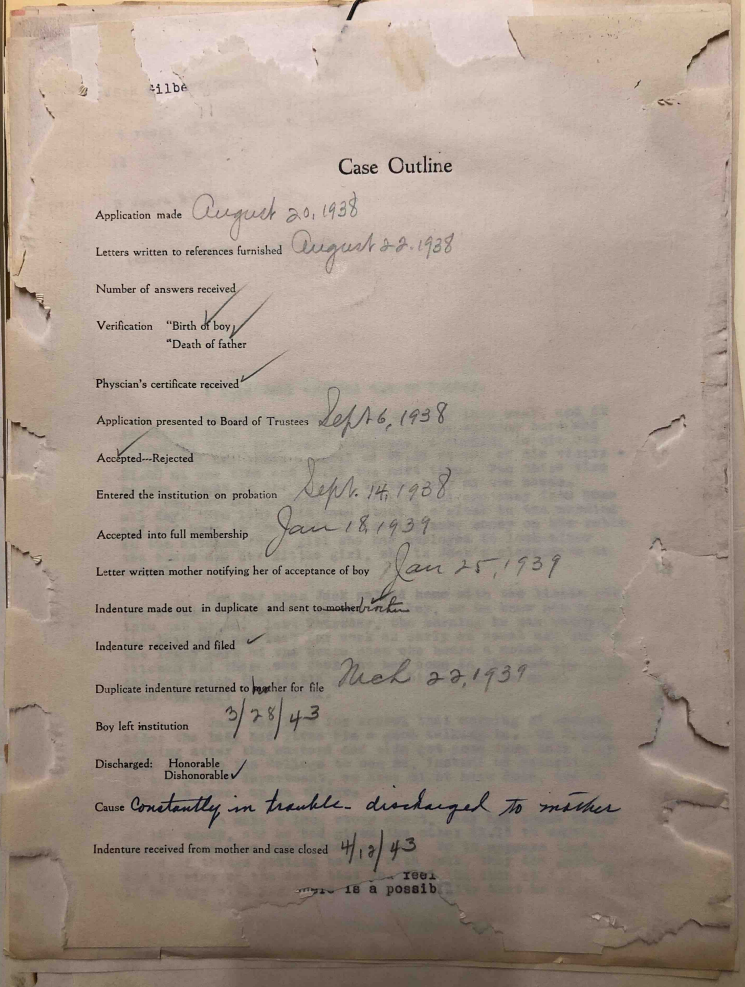 Gilbe
Case Outline
Application made August 20, 1938
Letters written to references furnished August 22. 1938
Number of answers received
Verification "Birth of boy
"Death of father
Physcian's certificate received
Application presented to Board of Trustees Sept 6, 1938
Accepted---Rejected
Entered the institution on probation Sept. 14, 1938
Accepted into full membership Jan 18, 1939
Letter written mother notifying her of acceptance of boy Jan 25, 1939
Indenture made out in duplicate and sent to mother
Indenture received and filed
Duplicate indenture returned to for file Mch 22, 1939
Boy left institution 3/28/43
Discharged: Honorable
Dishonorable
Cause Constantly in trouble - discharged to mother
Indenture received from mother and case closed 4/12/43
feel
is a possib